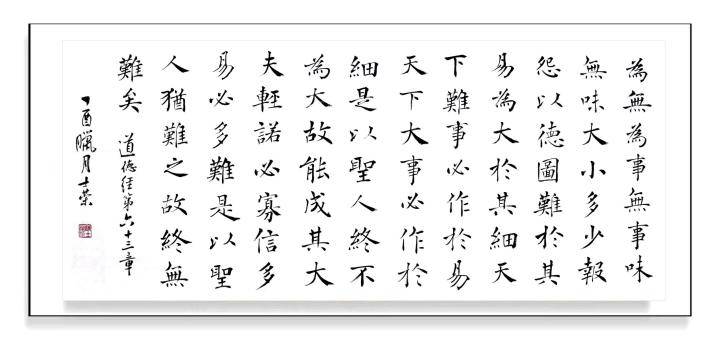 為無為事無事味
無味大小多少報
怨以德圖難於其
易為大於其細天
下難事必作於易
天下大事必作於
細是以聖人終不
為大故能成其大
夫輕諾必寡信多
易必多難是以聖
人猶難之故終無
難矣 道德経第六十三章
丁酉臘月士荣